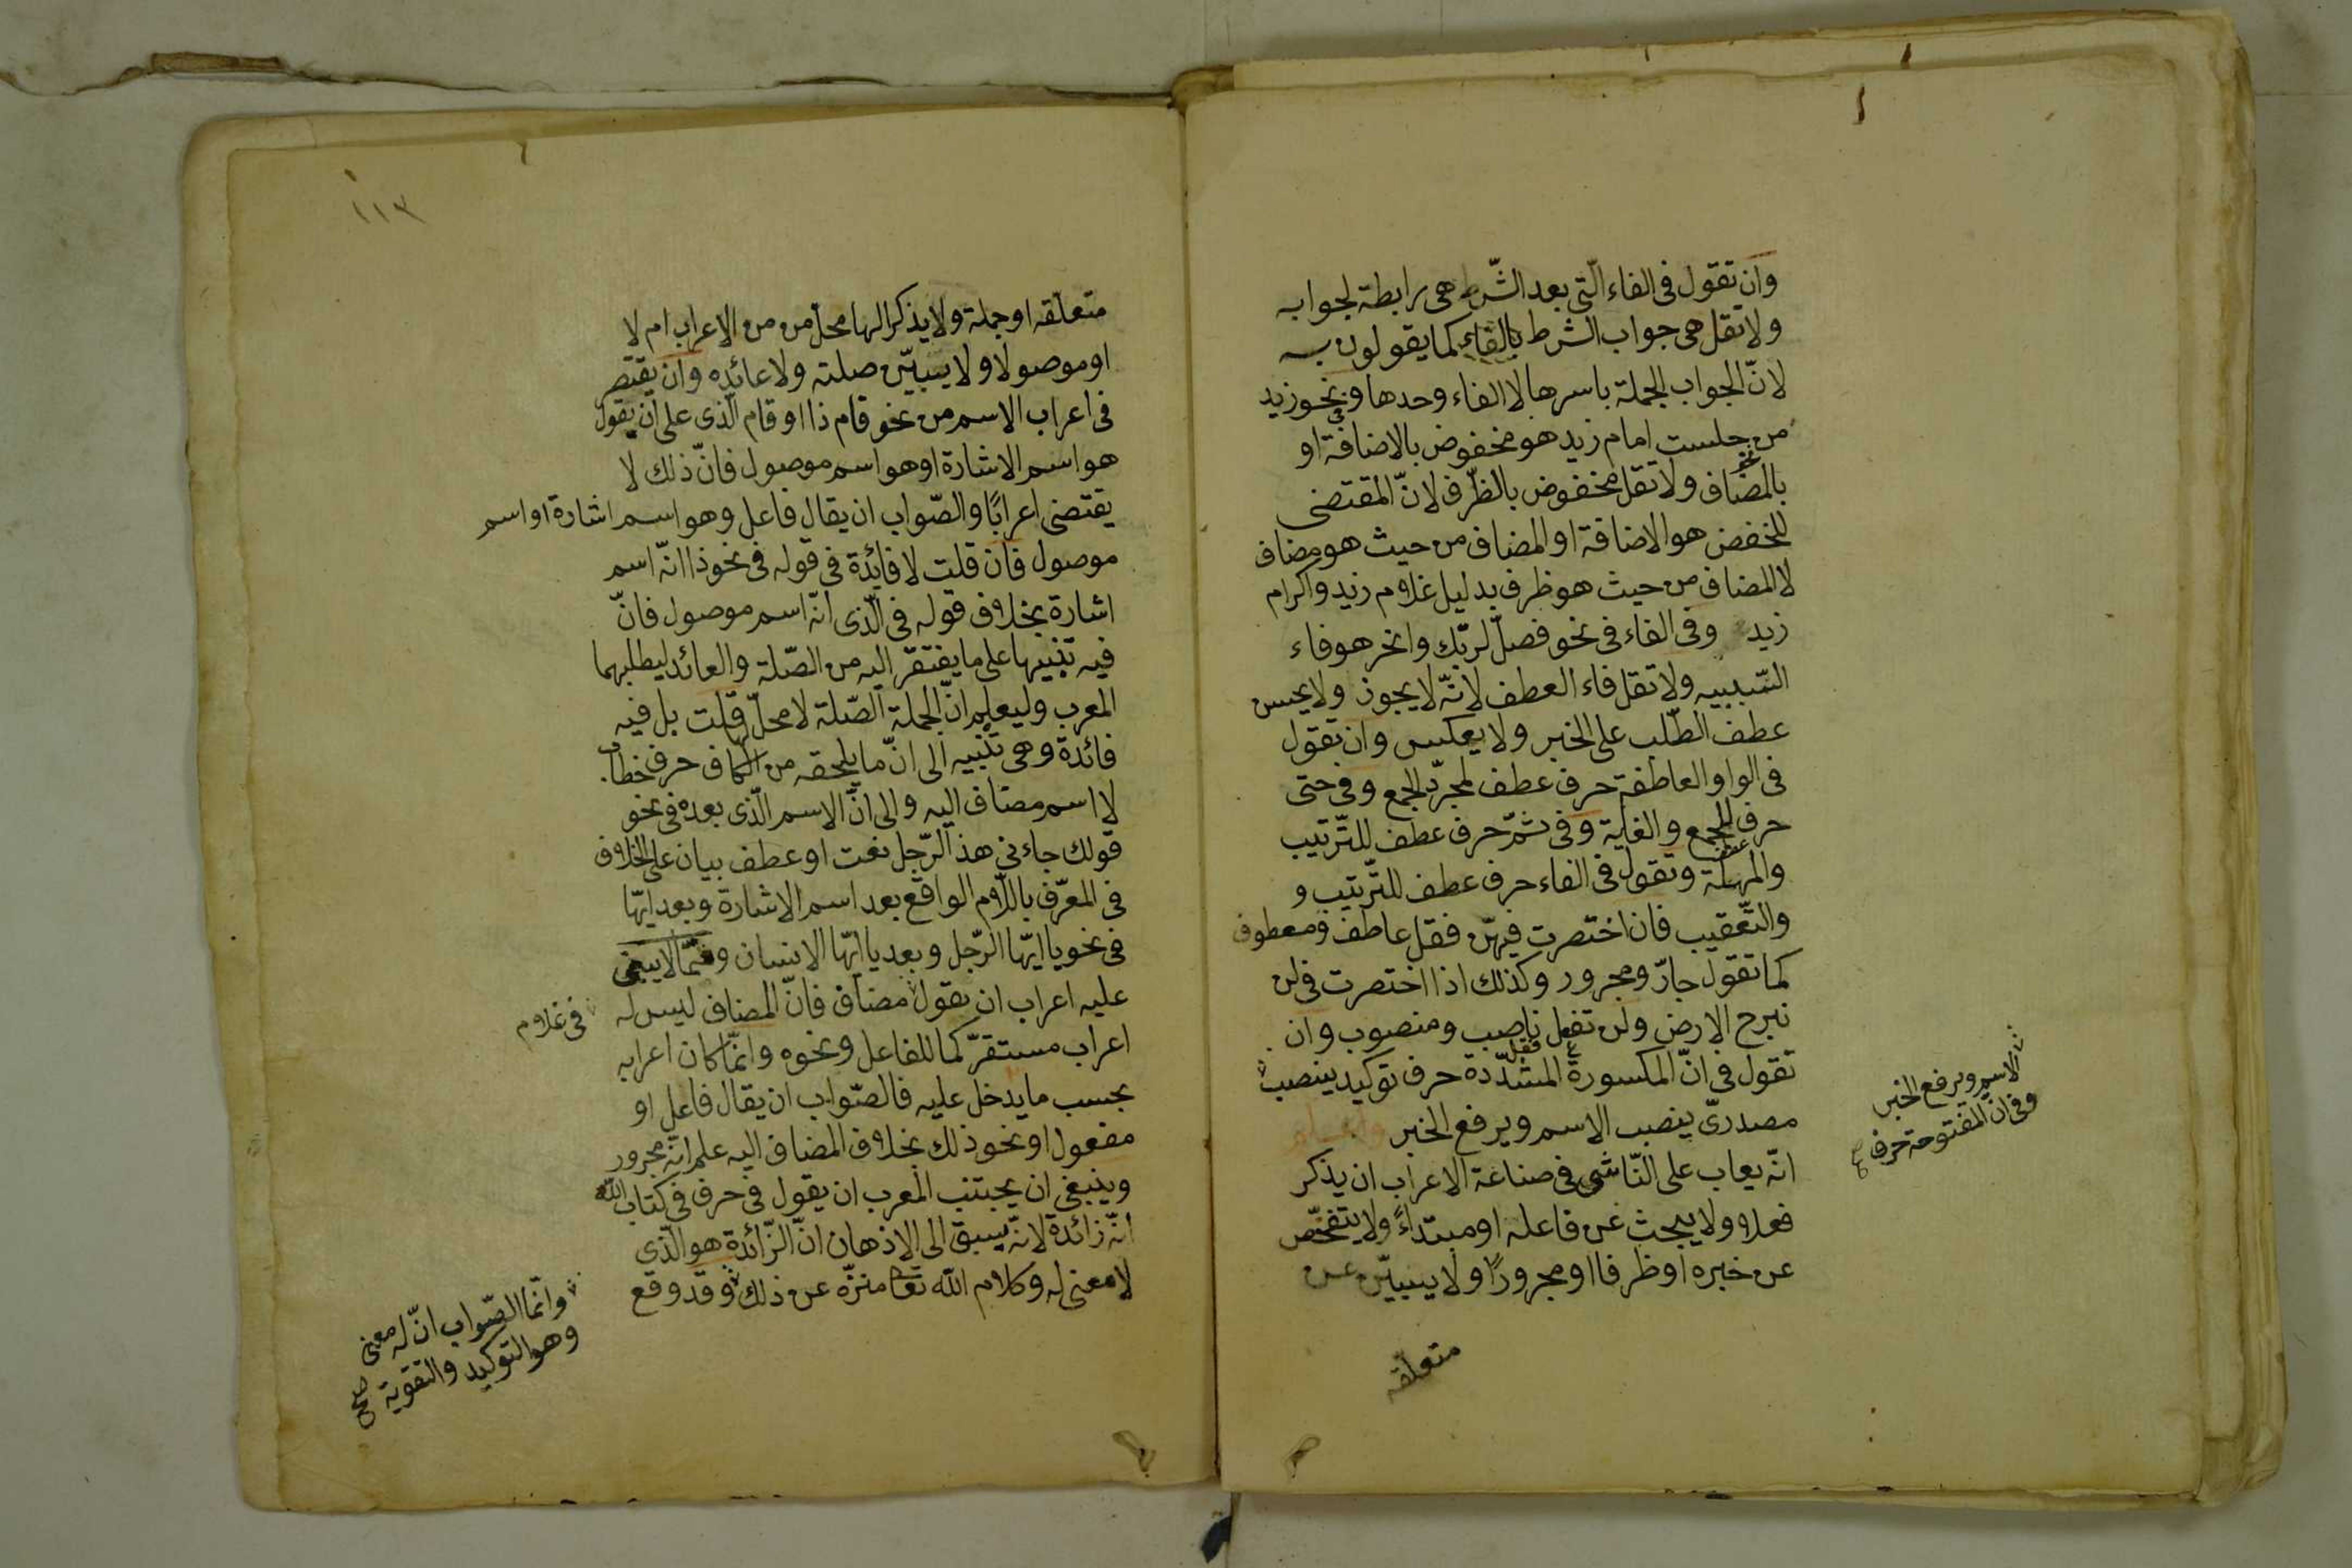 وان تقول فى الفاء الّتى بعد الشّرط هى رابطة لجواب
ولا تقل هى جواب الشرط بالفاء كما يقولون به
لانّ الجواب الجملة باسرها لا الفاء وحدها وفى نحو زيد
من جلست امام زيد هو مخفوض بالاضافة او
بالمضاف ولا تقل مخفوض بالظّرف لانّ المقتضى
للخفض هو الاضافة او المضاف من حيث هو مضاف
لا المضاف من حيث هو ظرف بدليل غلام زيد واكرام
زيد وفى الفاء فى نحو فصلّ لربّك وانحر هو فاء
السّببيه ولا تقل فاء العطف لانّه لا يجوز ولا يحسن
عطف الطّلب على الخبر ولا يعكس وان تقول
فى الواو العاطفة حرف عطف لمجرّد الجمع وفى حتى
حرف عطف للجمع والغاية وفى ثمّ حرف عطف للتّرتيب
والمهلة وتقول فى الفاء حرف عطف للتّرتيب و
والتّعقيب فان اختصرت فيهنّ فقل عاطف ومعطوف
كما تقول جارّ ومجرور وكذلك اذا اختصرت فى لن
نبرح الارض ولن تفعل فقل ناصب ومنصوب وان
تقول فى انّ المكسورة المشدّدة حرف توكيد ينصب
الاسم ويرفع الخبر
وفى ان المفتوحة حرف
مصدرىّ ينصب الاسم ويرفع الخبر واعلم
انّه يعاب على النّاشى فى صناعة الاعراب ان يذكر
فعلا ولا يبحث عن فاعله او مبتداءً ولا يتفحّص
عن خبره او ظرفا او مجرورًا ولا يبيّن عن
متعلّقه
١١٣
متعلّقه او جملة ولا يذكر الها محلّ من من الاعراب ام لا
او موصولا ولا يبيّن صلته ولا عائده وان يقتصر
فى اعراب الاسم من نحو قام ذا او قام الّذى على ان يقول
هو اسم الاشارة او هو اسم موصول فانّ ذلك لا
يقتضى اعرابًا والصّواب ان يقال فاعل وهو اسم اشارة او اسم
موصول فان قلت لا فائدة فى قوله فى نحو ذا انّه اسم
اشارة بخلاف قوله فى الّذى انّه اسم موصول فانّ
فيه تنبيها على ما يفتقر اليه من الصّلة والعائد ليطلبهما
المعرب وليعلم انّ الجملة الصّلة لا محلّ لها قلت بل فيه
فائدة وهى تنبيه الى انّ ما يلحقه من الكاف حرف خطاب
لا اسم مضاف اليه والى انّ الاسم الّذى بعده فى نحو
قولك جاءنى هذا الرّجل نعت او عطف بيان على الخلاف
فى المعرّف باللّام الواقع بعد اسم الاشارة وبعد ايّها
فى نحو يا ايّها الرّجل وبعد يا ايّها الانسان وممّا لا يبنى
عليه اعراب ان يقول مضاف فانّ المضاف ليس له
فى غلام
اعراب مستقرّ كما للفاعل ونحوه وانّما كان اعرابه
بحسب ما يدخل عليه فالصّواب ان يقال فاعل او
مفعول او نحو ذلك بخلاف المضاف اليه علم انّه مجرور
وينبغى ان يجتنب المعرب ان يقول فى حرف فى كتاب الله
انّه زائدة لانّه يسبق الى الاذهان انّ الزّائدة هو الّذى
لا معنى له وكلام الله تعا منزّه عن ذلك وقد وقع
وانّما الصّواب انّ له معنى
وهو التوكيد والتقوية صح